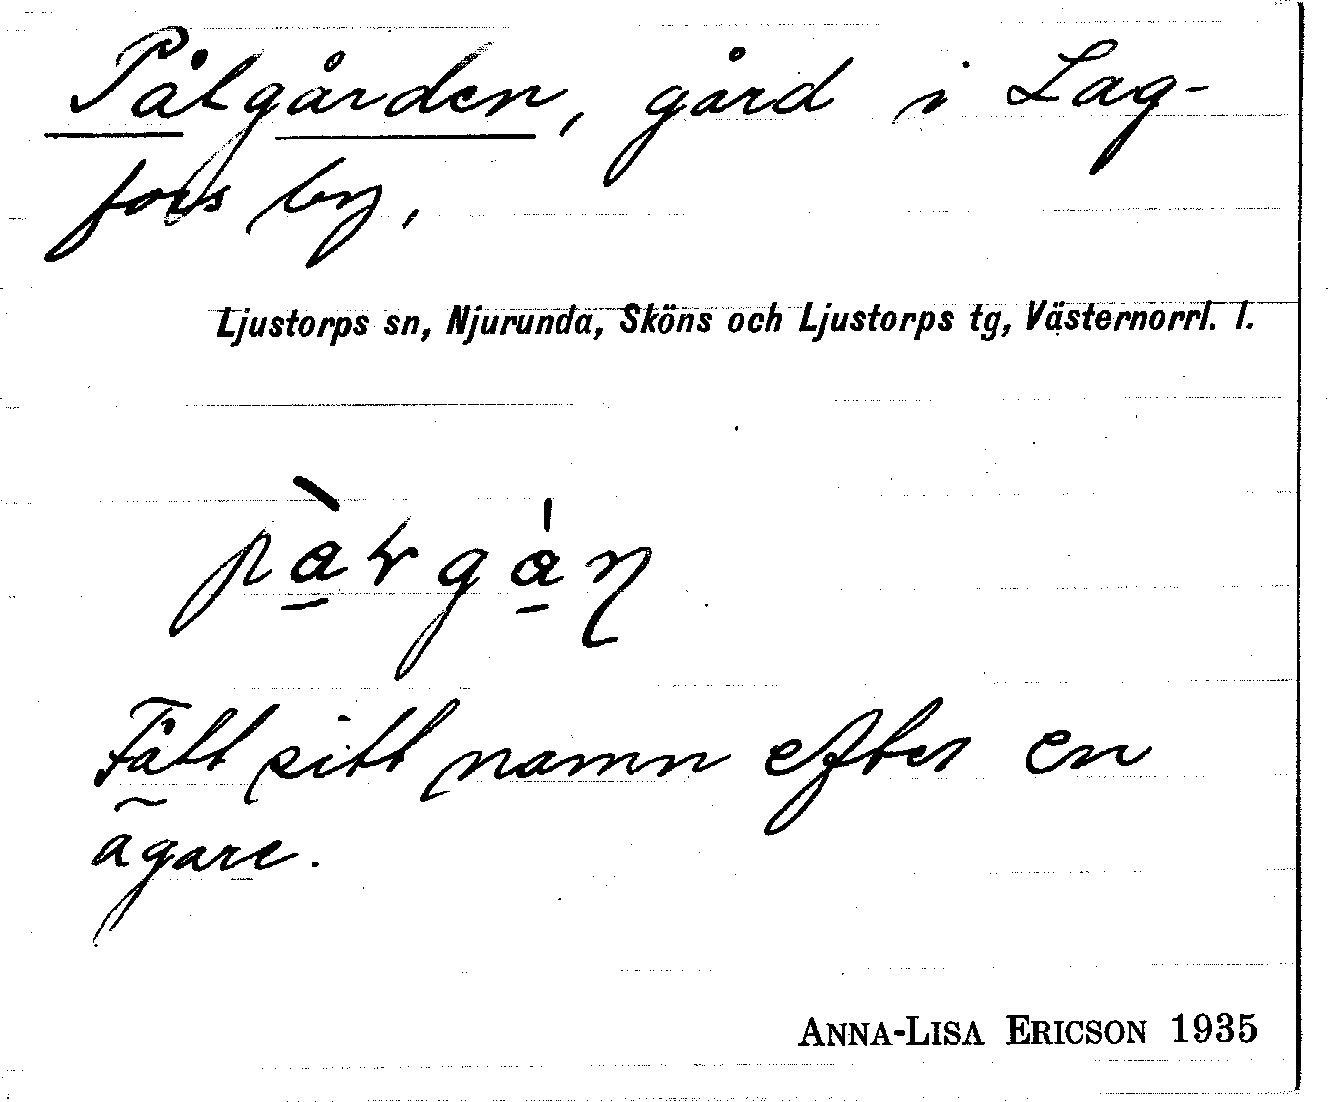 Pålgården, gård i Lag-
fors by,
Ljustorps sn, Njurunda, Sköns och Ljustorps tg, Västernorrl. l.
Fått sitt namn efter en
ägare.
ANNA-LISA ERICSON 1935